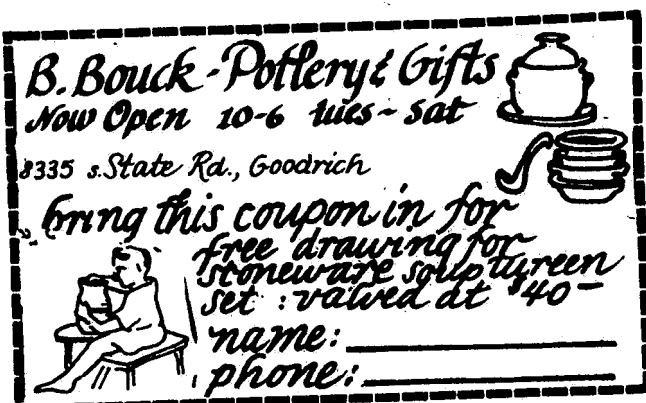 B. Bouck - Pottery & Gifts
Now Open 10-6 tues ~ sat
8335 s. State Rd., Goodrich
bring this coupon in for
free drawing for
stoneware soup tureen
set : valued at $40 —
name:
phone: